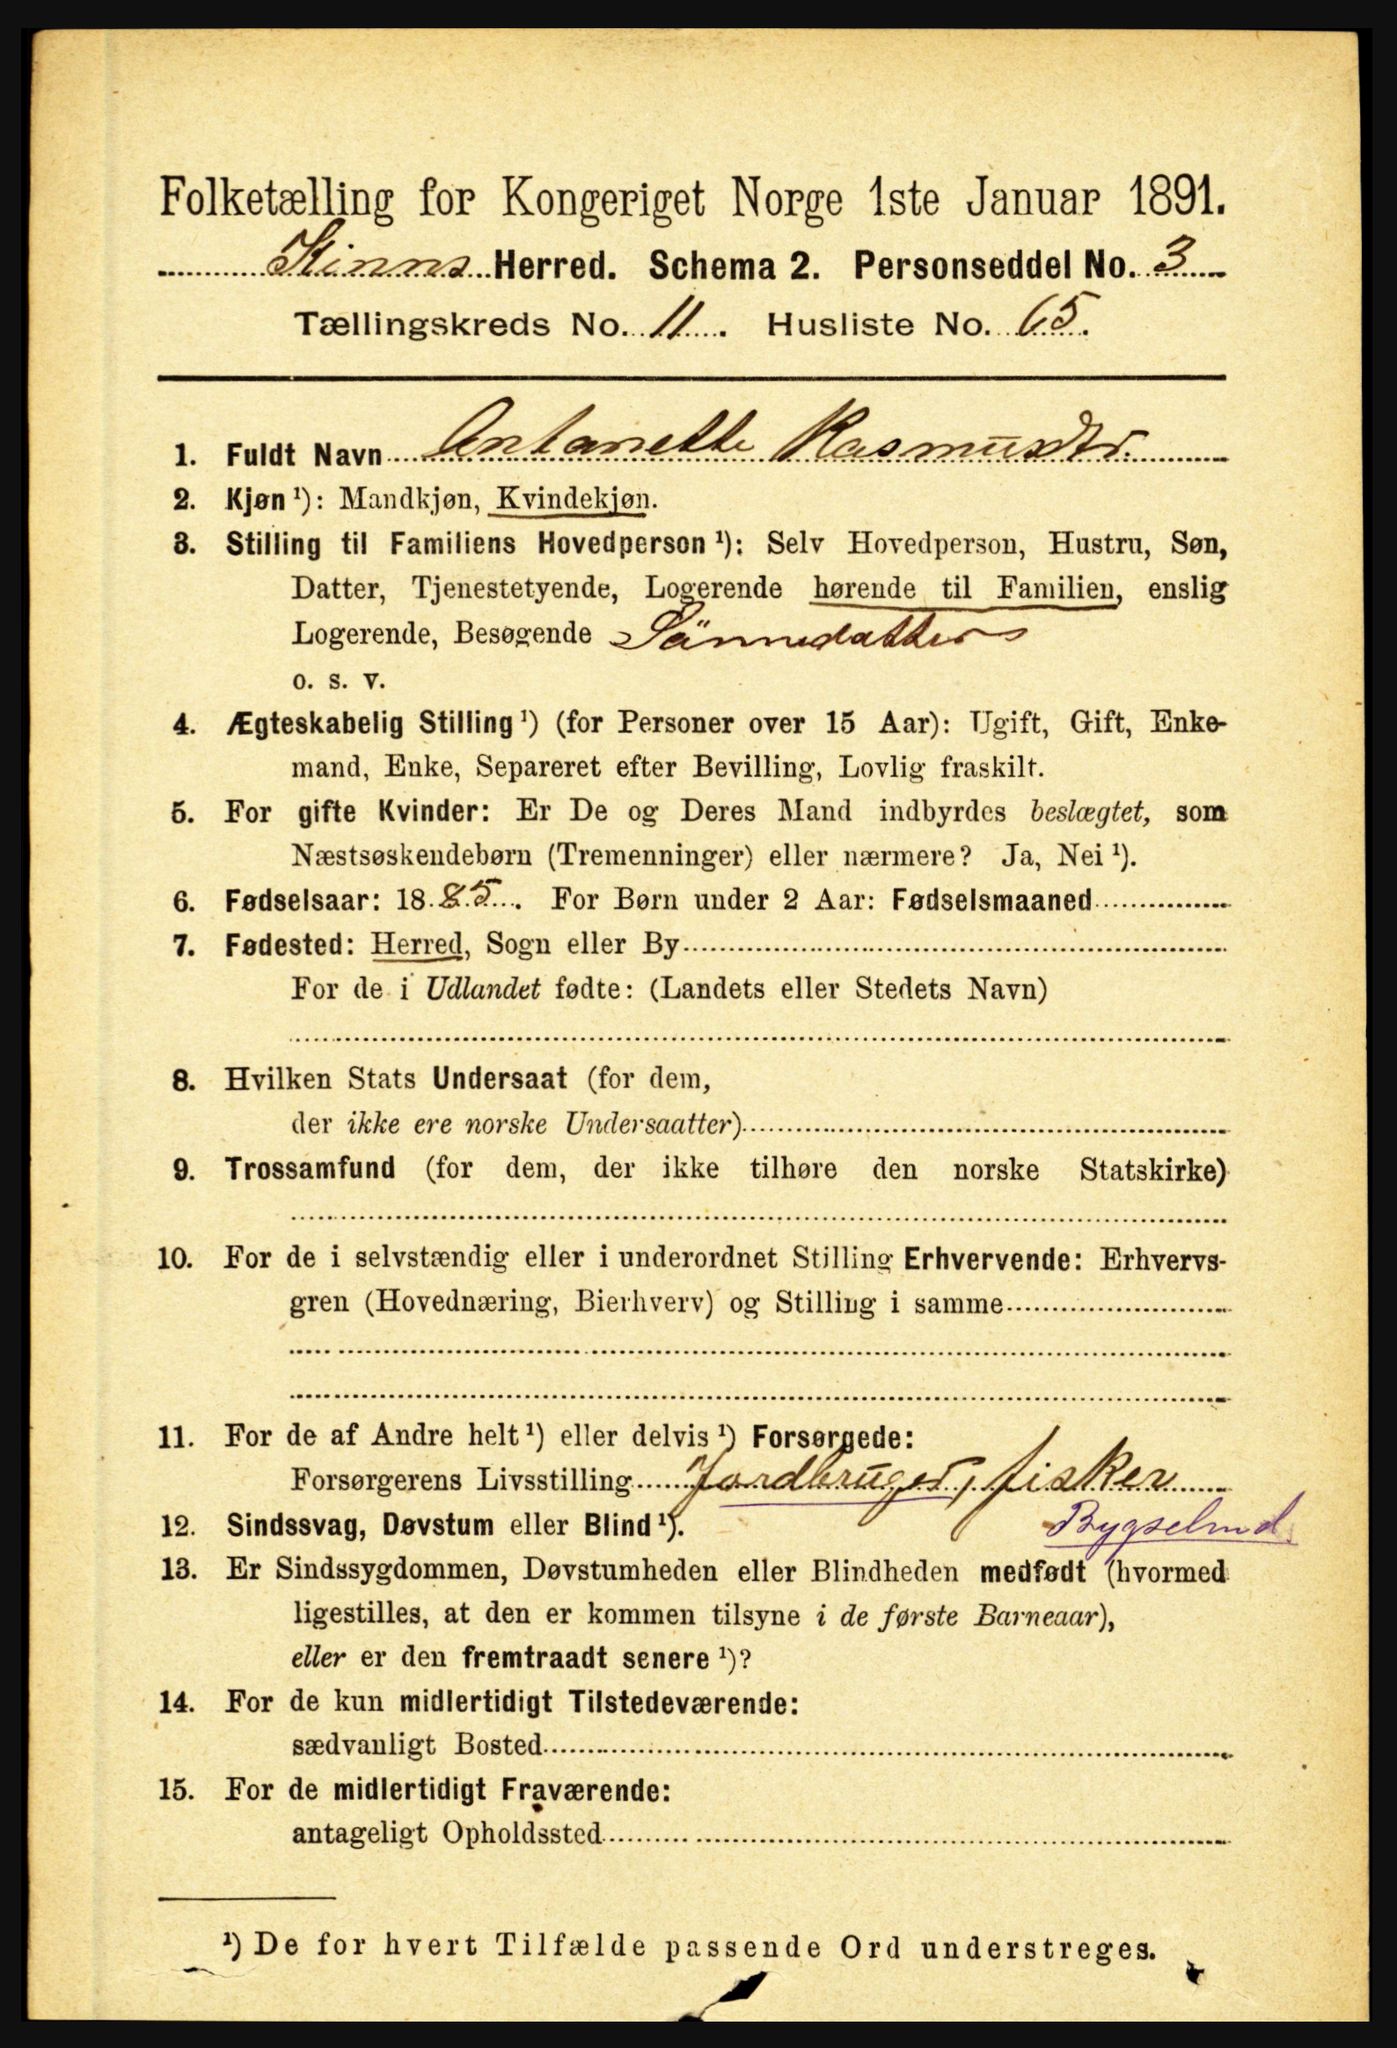 Folketælling for Kongeriget Norge 1ste Januar 1891.
Kinns Herred. Schema 2. Personseddel No. 3
Tællingskreds No. 11. Husliste No. 65.
1. Fuldt Navn Antanette Rasmusdtr.
2. Kjøn ¹): Mandkjøn, Kvindekjøn.
3. Stilling til Familiens Hovedperson ¹): Selv Hovedperson, Hustru, Søn,
Datter, Tjenestetyende, Logerende hørende til Familien, enslig
Logerende, Besøgende Sönnedatter
o. s. v.
4. Ægteskabelig Stilling ¹) (for Personer over 15 Aar): Ugift, Gift, Enke-
mand, Enke, Separeret efter Bevilling, Lovlig fraskilt.
5. For gifte Kvinder: Er De og Deres Mand indbyrdes beslægtet, som
Næstsøskendebørn (Tremenninger) eller nærmere? Ja, Nei ¹).
6. Fødselsaar: 1885. For Børn under 2 Aar: Fødselsmaaned
7. Fødested: Herred, Sogn eller By
For de i Udlandet fødte: (Landets eller Stedets Navn)
8. Hvilken Stats Undersaat (for dem,
der ikke ere norske Undersaatter)
9. Trossamfund (for dem, der ikke tilhøre den norske Statskirke)
10. For de i selvstændig eller i underordnet Stilling Erhvervende: Erhvervs-
gren (Hovednæring, Bierhverv) og Stilling i samme
11. For de af Andre helt ¹) eller delvis ¹) Forsørgede:
Forsørgerens Livsstilling Jordbruger, fisker
12. Sindssvag, Døvstum eller Blind ¹). Bygselmd.
13. Er Sindssygdommen, Døvstumheden eller Blindheden medfødt (hvormed
ligestilles, at den er kommen tilsyne i de første Barneaar),
eller er den fremtraadt senere ¹)?
14. For de kun midlertidigt Tilstedeværende:
sædvanligt Bosted
15. For de midlertidigt Fraværende:
antageligt Opholdssted
¹) De for hvert Tilfælde passende Ord understreges.